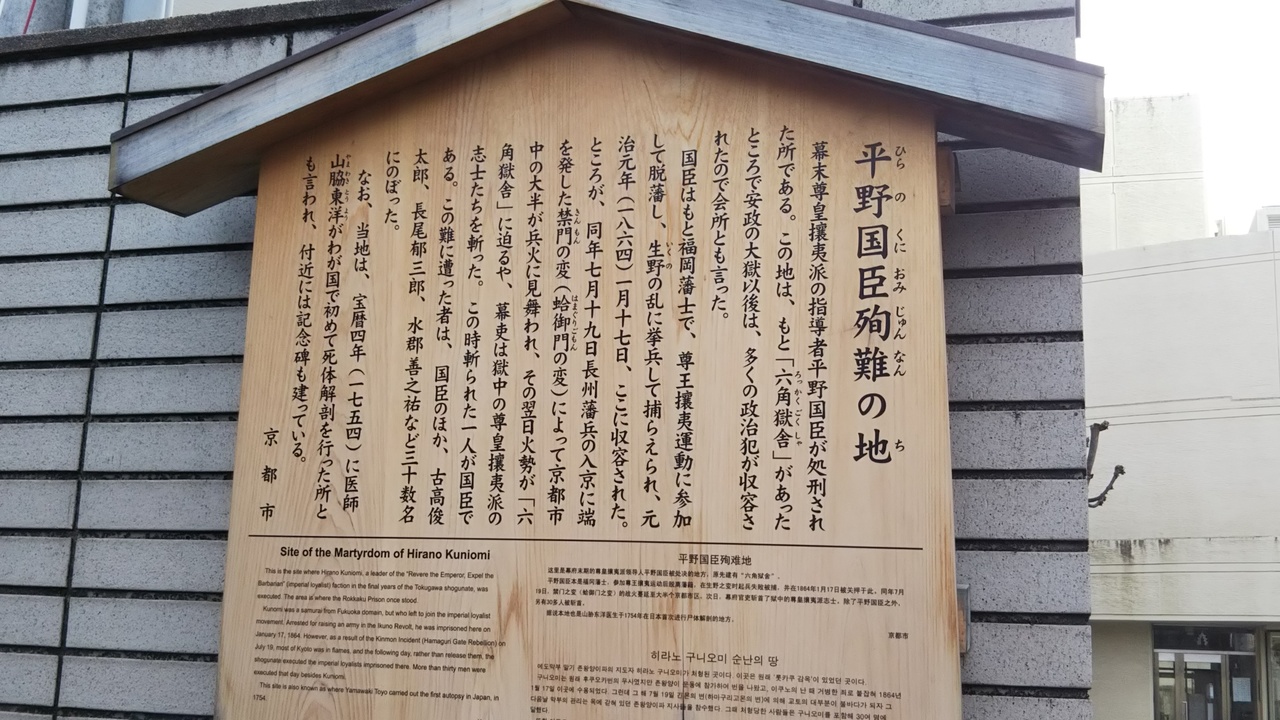 平野国臣殉難の地
ひらのくにおみじゅんなんち
幕末尊皇攘夷派の指導者平野国臣が処刑され
た所である。この地は、もと「六角獄舎」があった
ろっかくごくしゃ
ところで安政の大獄以後は、多くの政治犯が収容さ
れたので会所とも言った。
国臣はもと福岡藩士で、尊王攘夷運動に参加
して脱藩し、生野の乱に挙兵して捕らえられ、元
いくの
治元年（一八六四）一月十七日、ここに収容された。
ところが、同年七月十九日長州藩兵の入京に端
を発した禁門の変（蛤御門の変）によって京都市
きんもん
はまぐりごもん
中の大半が兵火に見舞われ、その翌日火勢が「六
角獄舎」に迫るや、幕吏は獄中の尊皇攘夷派の
志士たちを斬った。この時斬られた一人が国臣で
ある。この難に遭った者は、国臣のほか、古高俊
太郎、長尾郁三郎、水郡善之祐など三十数名
にのぼった。
なお、当地は、宝暦四年（一七五四）に医師
山脇東洋がわが国で初めて死体解剖を行った所と
やまわきとうよう
も言われ、付近には記念碑も建っている。
京都市
Site of the Martyrdom of Hirano Kuniomi
This is the site where Hirano Kuniomi, a leader of the "Revere the Emperor, Expel the
Barbarian" (imperial loyalist) faction in the final years of the Tokugawa shogunate, was
executed. The area is where the Rokkaku Prison once stood.
Kuniomi was a samurai from Fukuoka domain, but who left to join the imperial loyalist
movement. Arrested for raising an army in the Ikuno Revolt, he was imprisoned here on
January 17, 1864. However, as a result of the Kinmon Incident (Hamaguri Gate Rebellion) on
July 19, most of Kyoto was in flames, and the following day, rather than release them, the
shogunate executed the imperial loyalists imprisoned there. More than thirty men were
executed that day besides Kuniomi.
This site is also known as where Yamawaki Toyo carried out the first autopsy in Japan, in
1754.
平野国臣殉难地
这里是幕府末期的尊皇攘夷派领导人平野国臣被处决的地方；原先建有"六角狱舍"。
平野国臣本是福冈藩士，参加尊王攘夷运动后脱离藩籍，在生野之变时起兵失败被捕，并在1864年1月17日被关押于此。同年7月
19日，禁门之变（蛤御门之变）的战火蔓延至大半个京都市区，次日，幕府官吏斩首了狱中的尊皇攘夷派志士，除了平野国臣之外，
另有30多人被斩首。
据说本地也是山胁东洋医生于1754年在日本首次进行尸体解剖的地方。
京都市
히라노 구니오미 순난의 땅
에도막부 말기 존왕양이파의 지도자 히라노 구니오미가 처형된 곳이다. 이곳은 원래 '롯카쿠 감옥'이 있었던 곳이다.